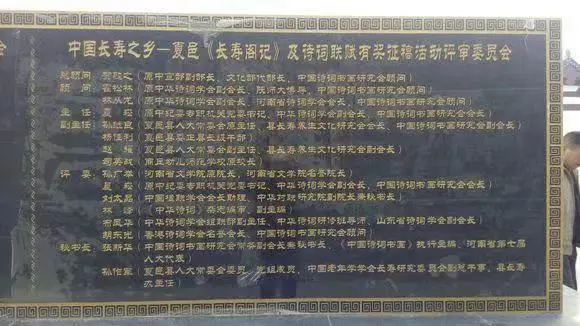 中国长寿之乡—夏邑《长寿阁记》及诗词联赋有奖征稿活动评审委员会
总顾问 贺敬之（原中宣部副部长、文化部代部长、中国诗词书画研究会顾问）
顾 问 霍松林（原中华诗词学会副会长、陕师大博导、中国诗词书画研究会顾问）
林从龙（原中华诗词学会副会长、河南省诗词学会会长、中国诗词书画研究会顾问）
主 任 夏 （原中纪委专职机关党委书记、中华诗词学会副会长、中国诗词书画研究会会长）
副主任 孙 臣（夏邑县人大常委会原主任、县长寿养生文化研究会会长、中国诗词书画研究会副会长）
杨恒利（夏邑县委正县长级干部）
赵 （夏邑县人大常委会副主任、县长寿养生文化研究会副会长）
司英战（商丘幼儿师范学校原校长）
评 委 孙广举（河南省文学院原院长、河南省文学院名誉院长）
夏 （原中纪委专职机关党委书记、中华诗词学会副会长、中国诗词书画研究会会长）
刘太品（中国楹联学会会长助理、中华对联研究院副院长兼秘书长）
林 峰（《中华诗词》杂志编审、副主编）
布凤华（中华诗词学会组联部副主任、中华诗词研修班导师、山东省诗词学会副会长）
胡东光（香港诗词学会名誉会长、中国诗词书画研究会顾问）
秘书长 张新华（中国诗词书画研究会常务副会长兼秘书长、《中国诗词书画》执行主编、河南省第七届
人大代表）
孙伯军（夏邑县人大常委会委员、党组成员、中国老年学学会长寿研究委员会副总干事、县长寿
办主任）